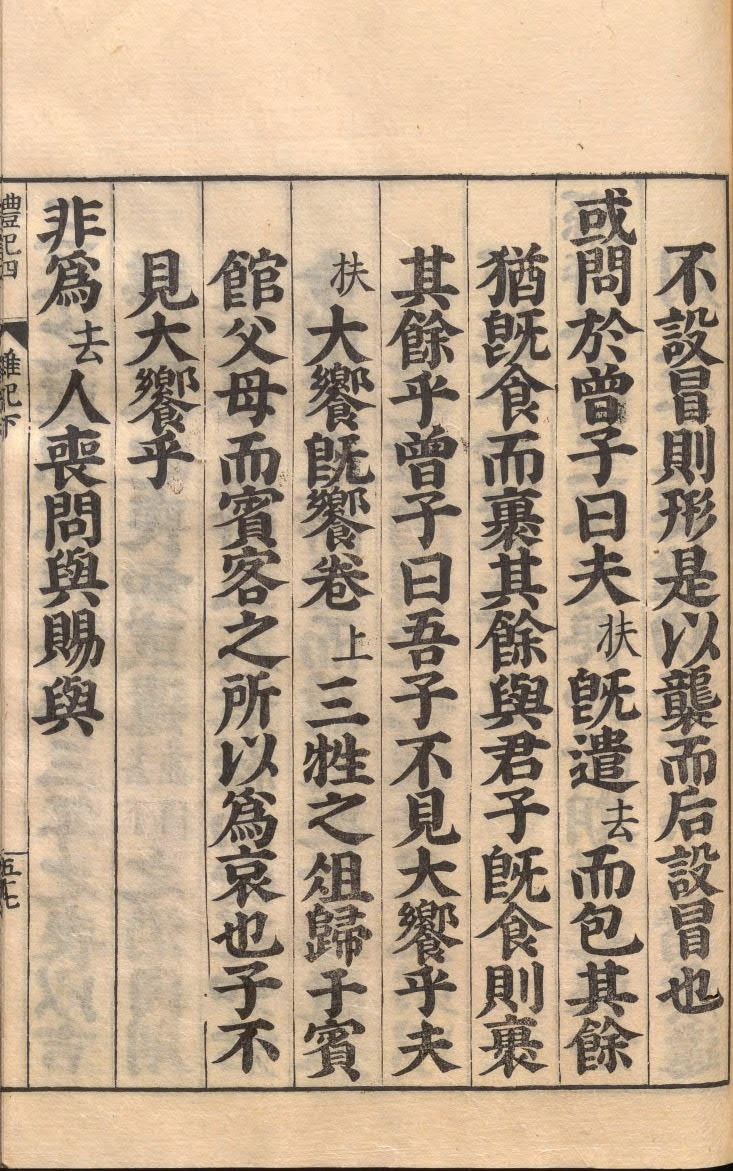 不設冒則形是以襲而后設冒也
或問於曾子曰夫扶旣遣去而包其餘
猶旣食而裹其餘與君子旣食則裹
其餘乎曾子曰吾子不見大饗乎夫
扶大饗旣饗卷上三牲之俎歸于賓
館父母而賓客之所以爲哀也子不
見大饗乎
非爲去人喪問與賜與
禮記四
雜記下
五七